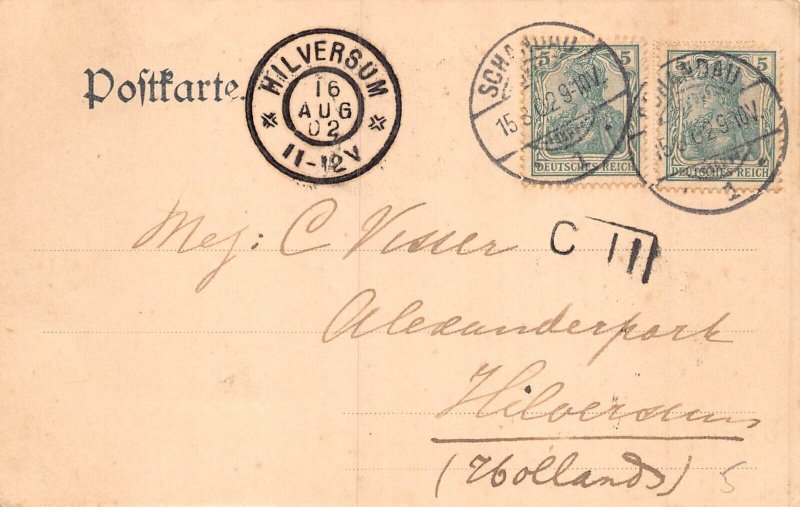 Postkarte.
HILVERSUM
16
AUG
02
11-12V
SCHANDAU
15.8.02.9-10V.
1
5 5
DEUTSCHES REICH
SCHANDAU
15.8.02.9-10V.
1
5 5
DEUTSCHES REICH
Mej: C Visser
C III
Alexanderpark
Hilversum
(Hollands)
5